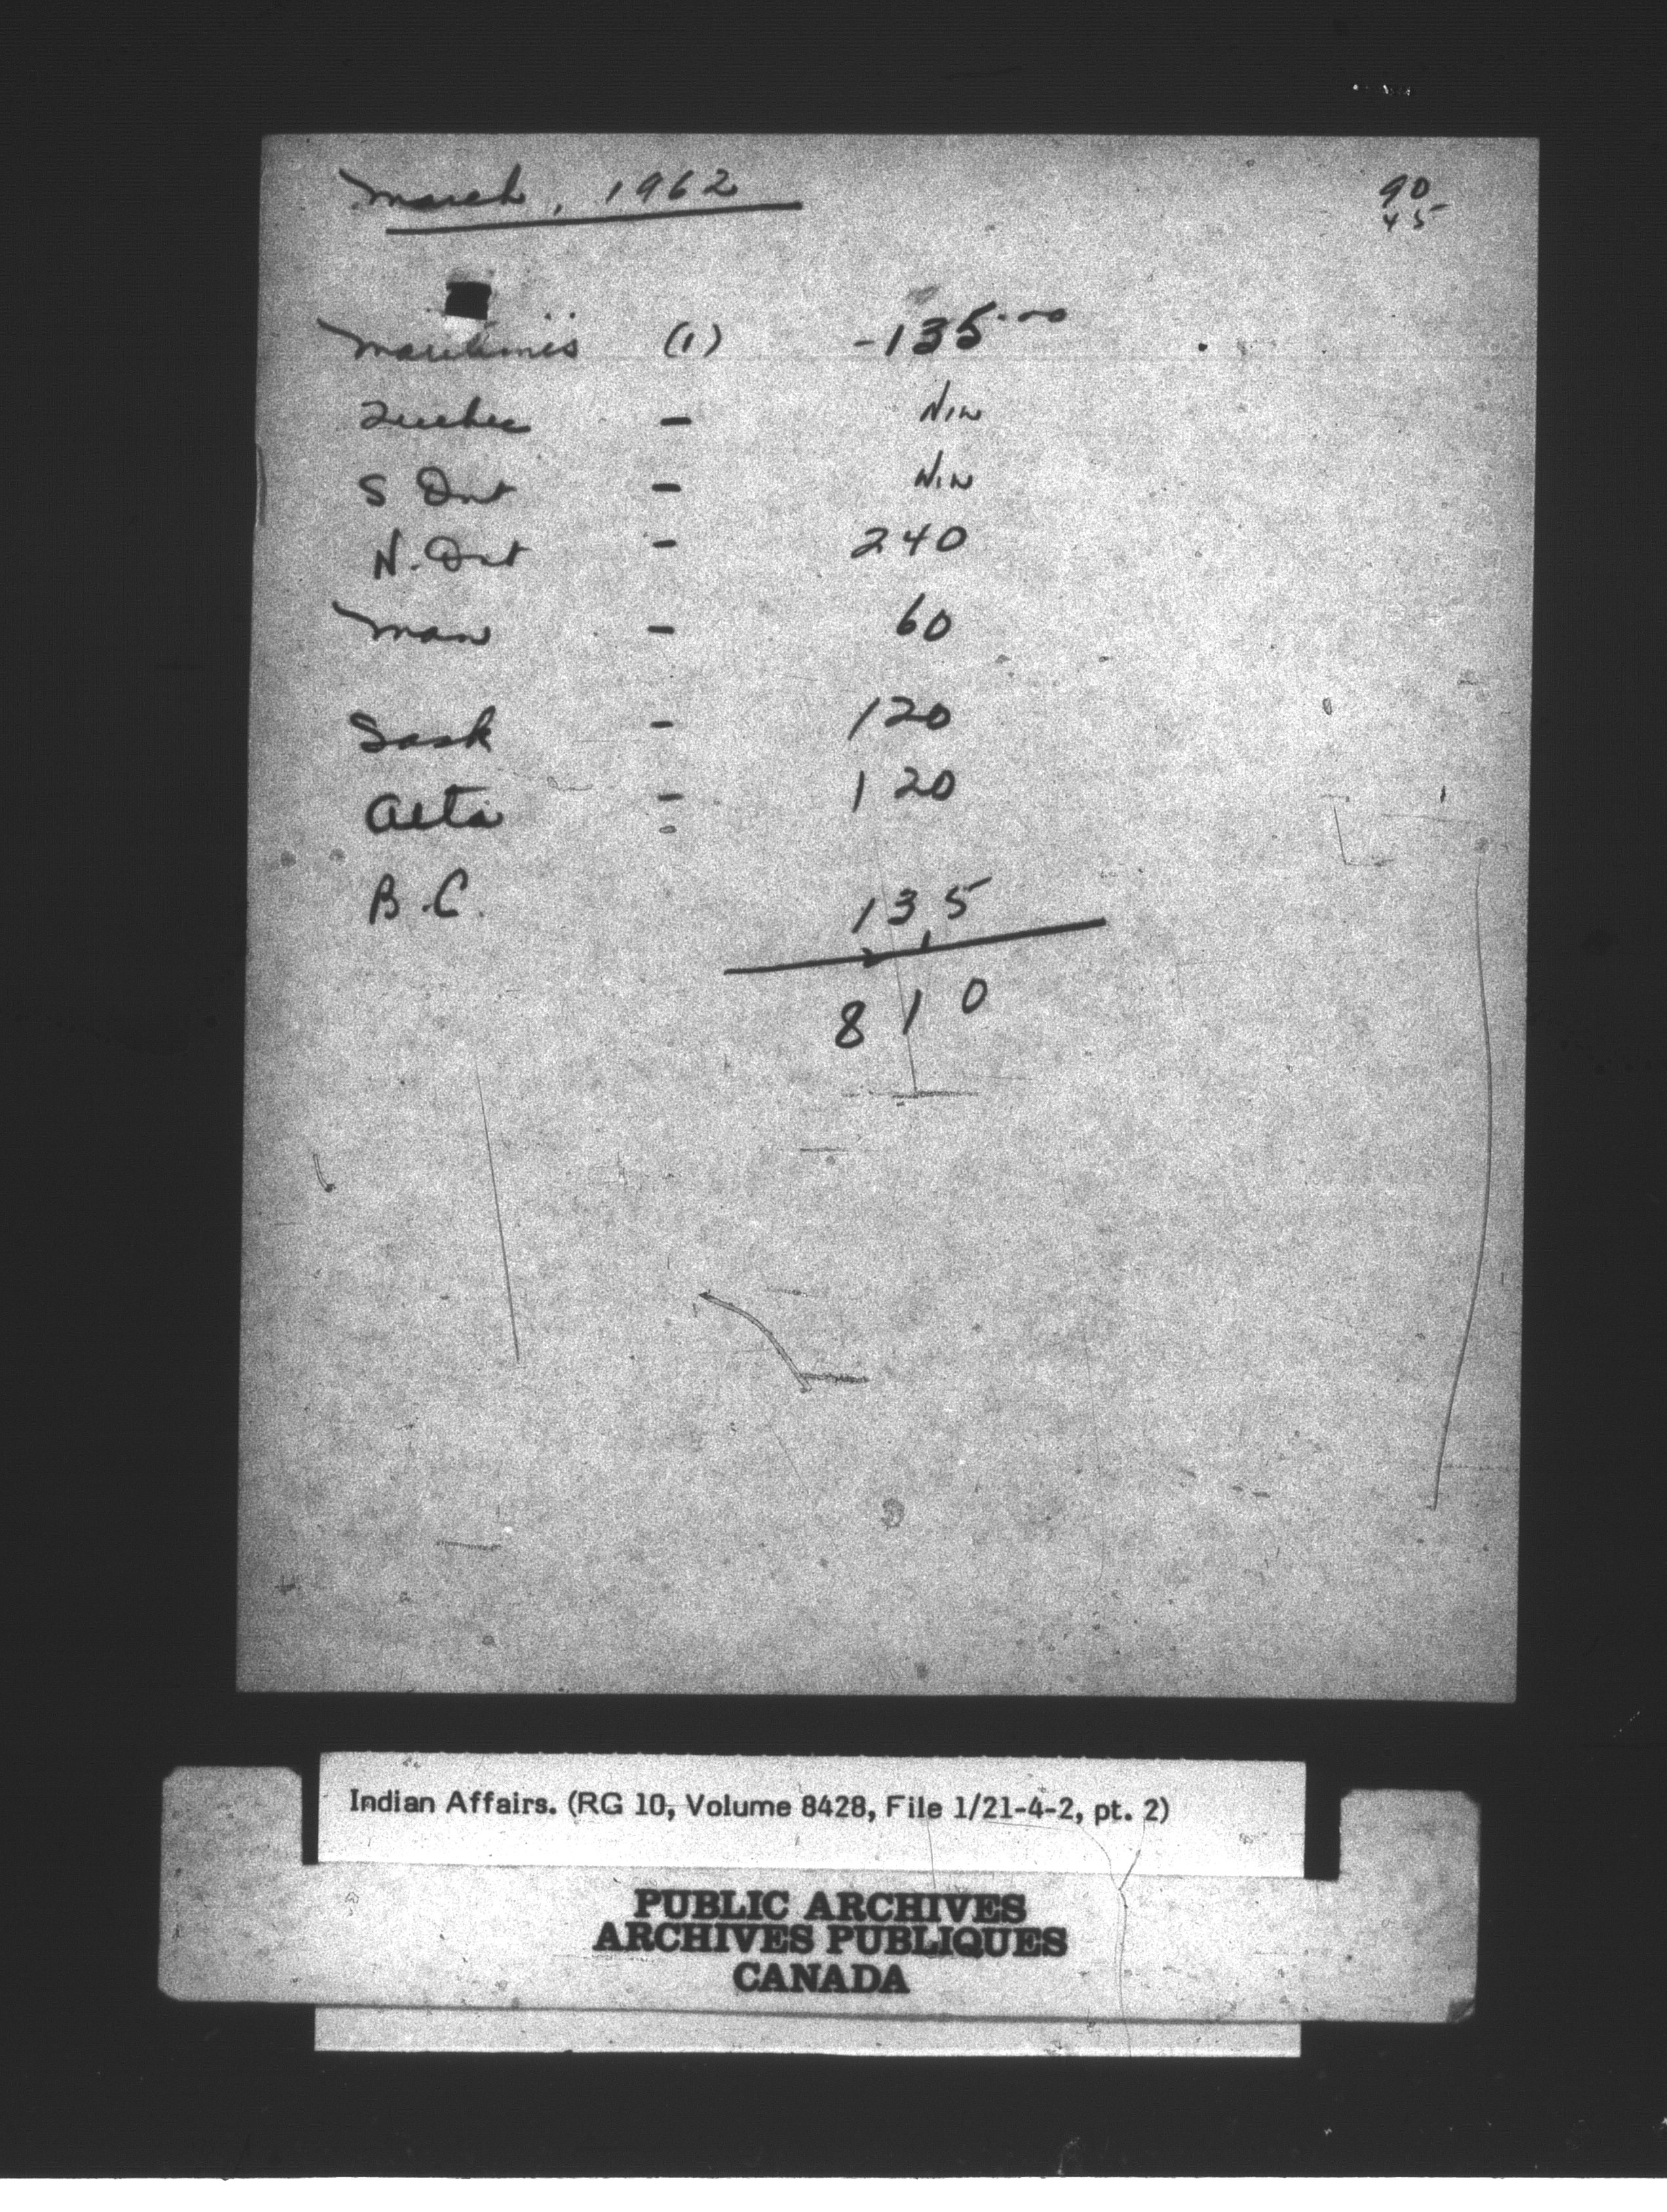 March, 1962
90
45
Maritimes (1) -135.00
Quebec - Nil
S Ont - Nil
N. Ont - 240
Man - 60
Sask - 120
Alta - 120
B.C. 135
2 1
8 1 0
Indian Affairs. (RG 10, Volume 8428, File 1/21-4-2, pt. 2)
PUBLIC ARCHIVES
ARCHIVES PUBLIQUES
CANADA